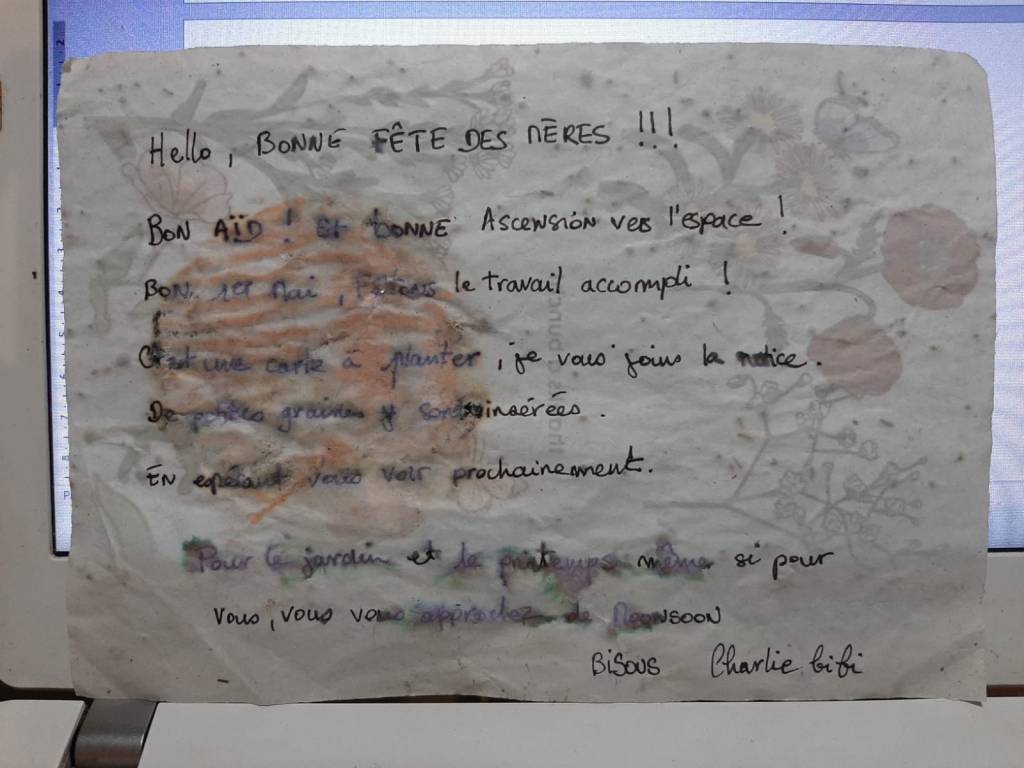 Hello, BONNE FÊTE DES MÈRES !!!
BON AÏD ! Et bONNE Ascension vers l'espace !
BON 1er Mai, Fêtons le travail accompli !
C'est une carte à planter, je vous joins la notice.
De petites graines y sont insérées.
EN espérant vous voir prochainement.
Pour le jardin et le printemps même si pour
vous, vous vous approchez de MOONSOON
BISOUS Charlie bibi